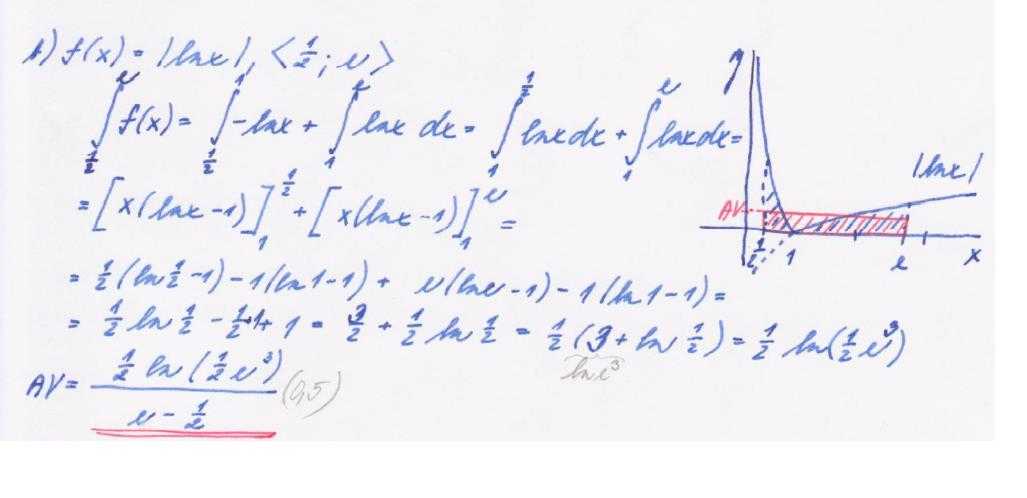 b) f(x) = |ln x|, <1/2; e>
∫_{1/2}^{e} f(x) = ∫_{1/2}^{1} -ln x + ∫_{1}^{e} ln x dx = ∫_{1}^{1/2} ln x dx + ∫_{1}^{e} ln x dx =
= [x(ln x - 1)]_{1}^{1/2} + [x(ln x - 1)]_{1}^{e} =
= 1/2 (ln 1/2 - 1) - 1(ln 1 - 1) + e(ln e - 1) - 1(ln 1 - 1) =
= 1/2 ln 1/2 - 1/2 + 1 + 1 = 3/2 + 1/2 ln 1/2 = 1/2 (3 + ln 1/2) = 1/2 ln(1/2 e^3)
ln e^3
AV = (1/2 ln (1/2 e^3)) / (e - 1/2) (0,5)
y
|ln x|
AV
1/2 1 e x